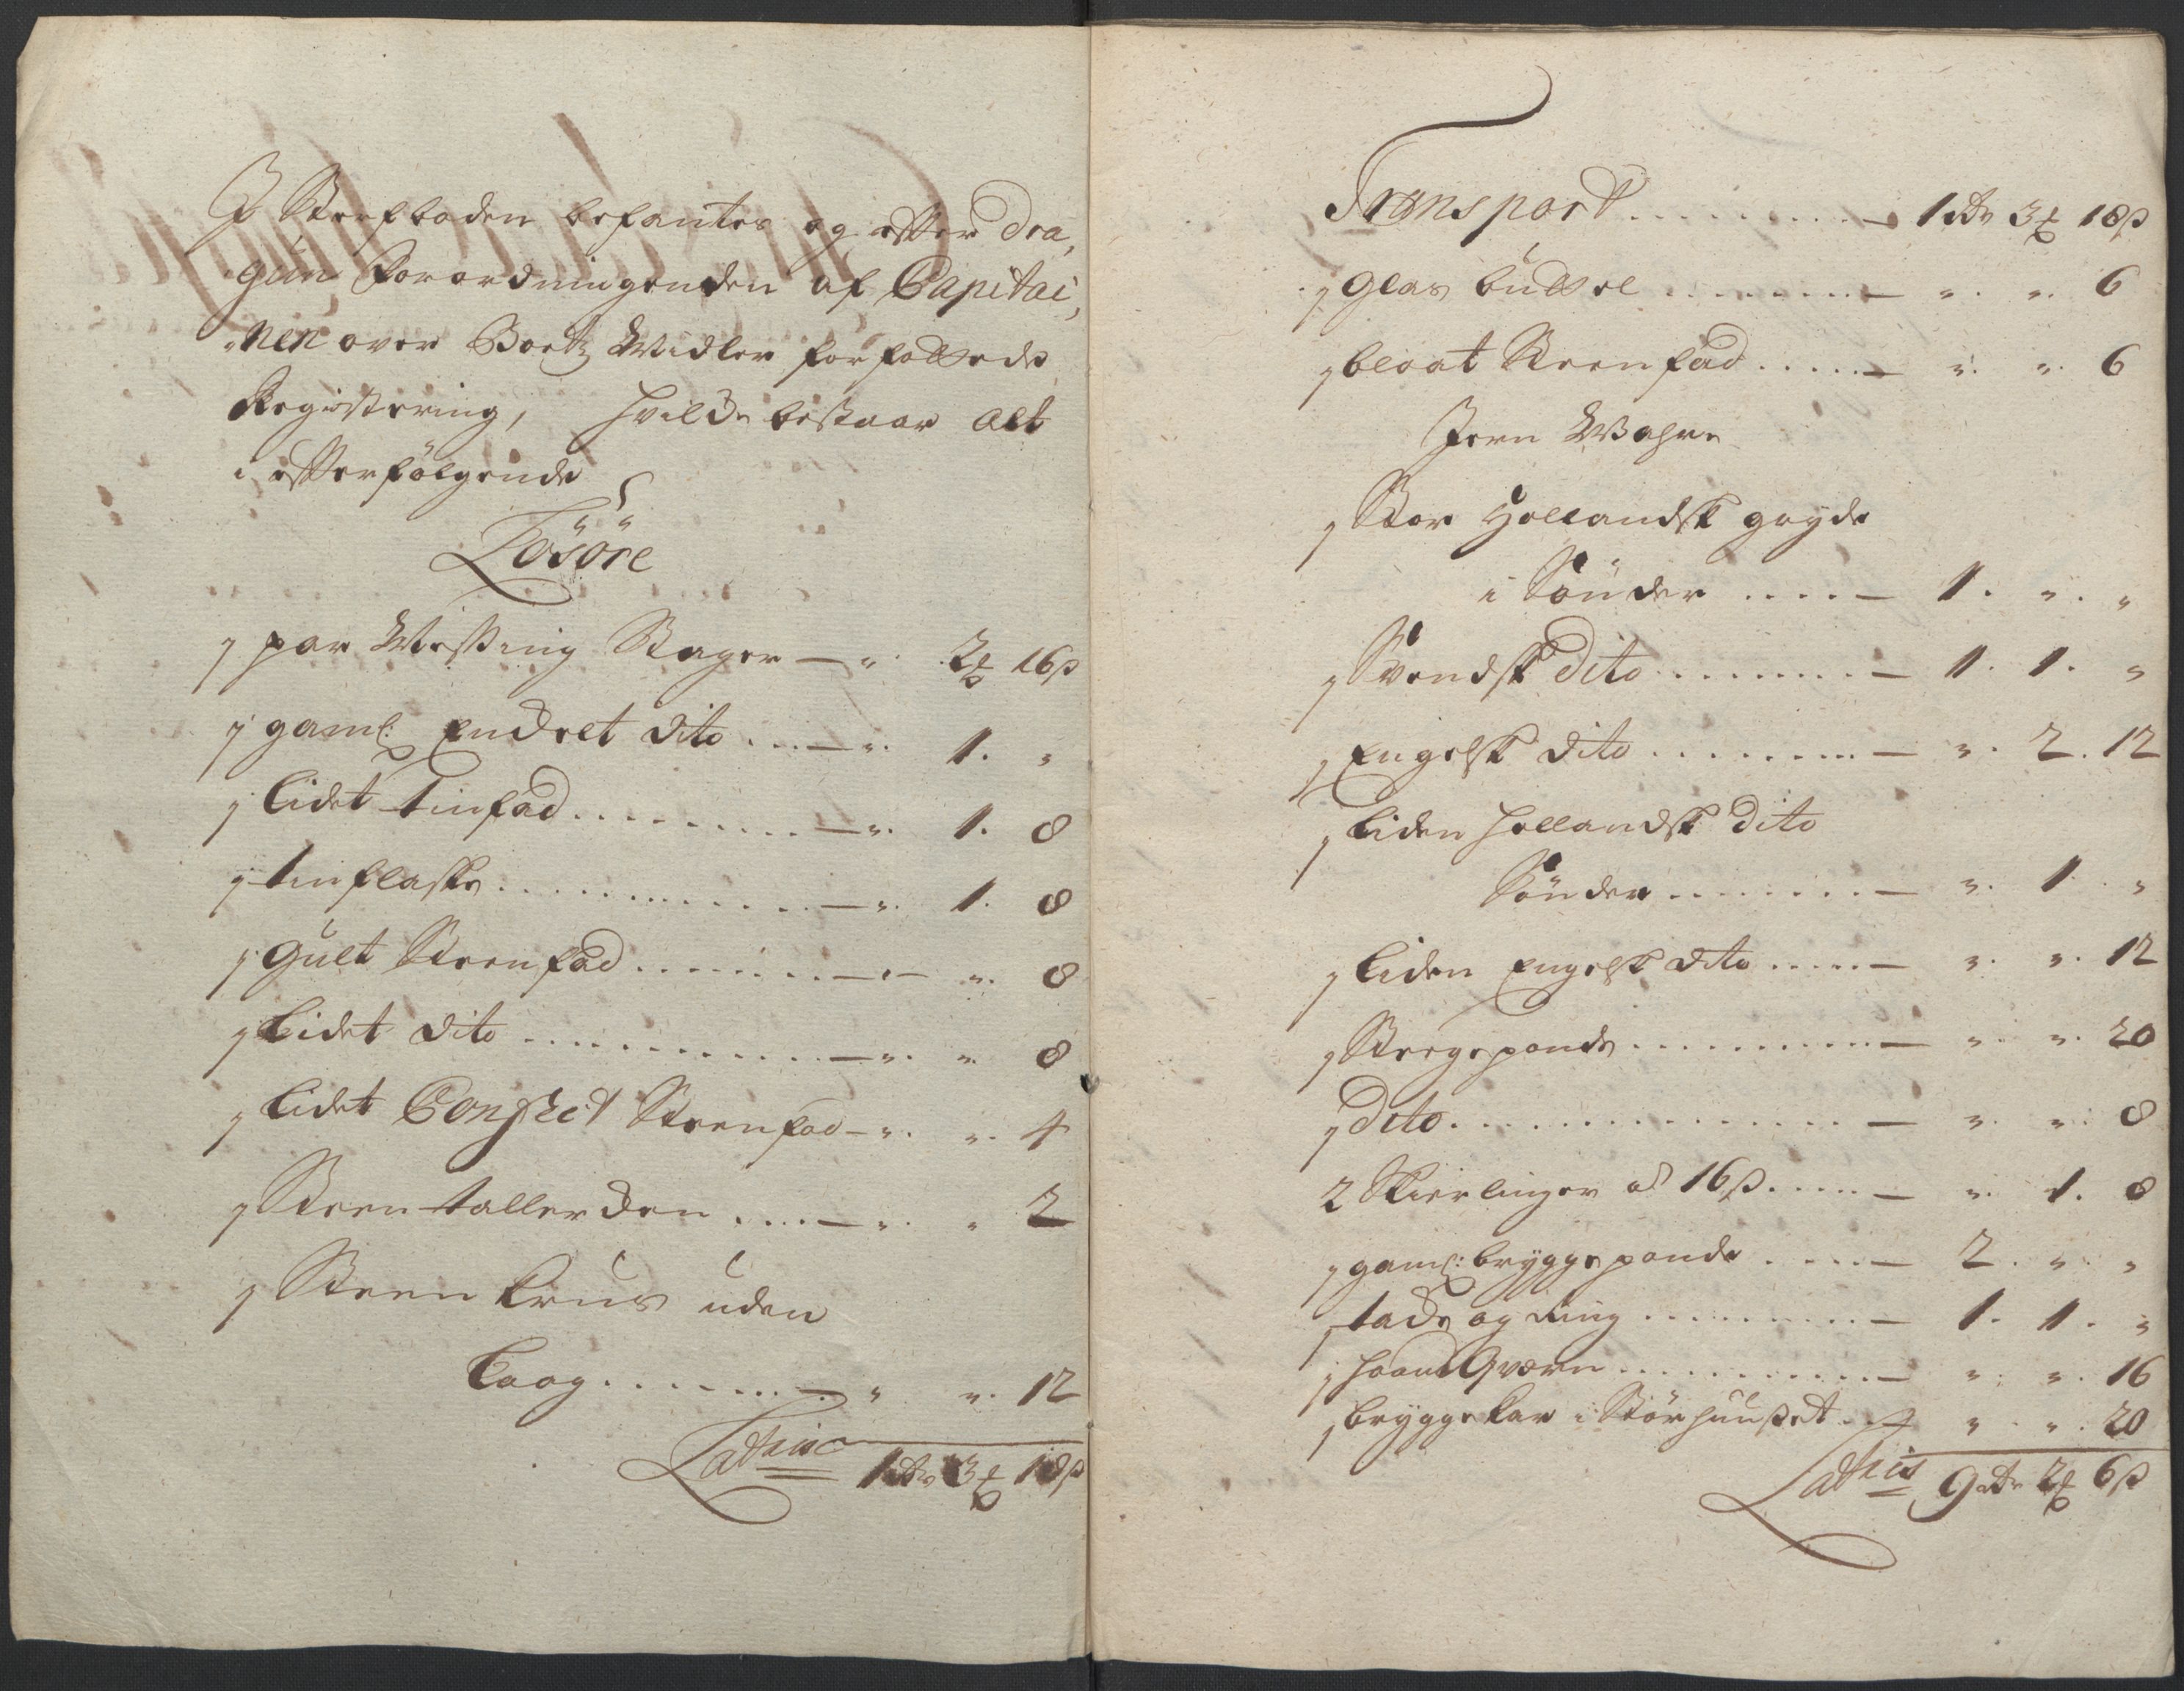 I Sterfboden befantes og efter Dra,
gun Forordningenden af Capitai,
nen over Boets Midler forfattede
Registering, hvilde bestaar alt
i efterfølgende
Lösöre
1 par Messing Stager — " . 2 ₰ 16 β
1 gaml: Endret dito .... — " . 1 . "
1 lidet tinfad .......... — " . 1 . 8
1 tinflaske ............ — " . 1 . 8
1 gult Steenfad ......... — " . " . 8
1 lidet dito ............ — " . " . 8
1 lidet Confect Steenfad — " . " . 4
1 Steen tallerden .... — " . " 2
1 Steen krus uden
laag .......... — " " . 12
Latus 1 rdr 3 ₰ 18 β
Transport .......... — 1 rdr 3 ₰ 18 β
1 glas buttel ........ — " . " . 6
1 bloat Steenfad ..... — " . " . 6
Jern Wahre
1 Stor Hollandsk gryde
i Sönder .... — 1 . " . "
1 Svendsk dito ........ — 1 . 1 . "
1 Engelsk dito ......... — " . 2 . 12
1 liden hollandsk dito
Sönder ........ — " . 1 . "
1 liden Engelsk dito ..... — " . " . 12
1 Steegepande .......... — " . " . 20
1 dito ............... — " . " . 8
2 Skierlinger ad 16 β ..... — " . 1 . 8
1 gaml: bryggepande .... — 2 . " . "
1 tade og Ring ......... — 1 . 1 . "
1 haand Qværn .......... — " . " . 16
1 bryggekar i Störhuuset .. — " . " . 20
Latus 9 rdr 2 ₰ 6 β